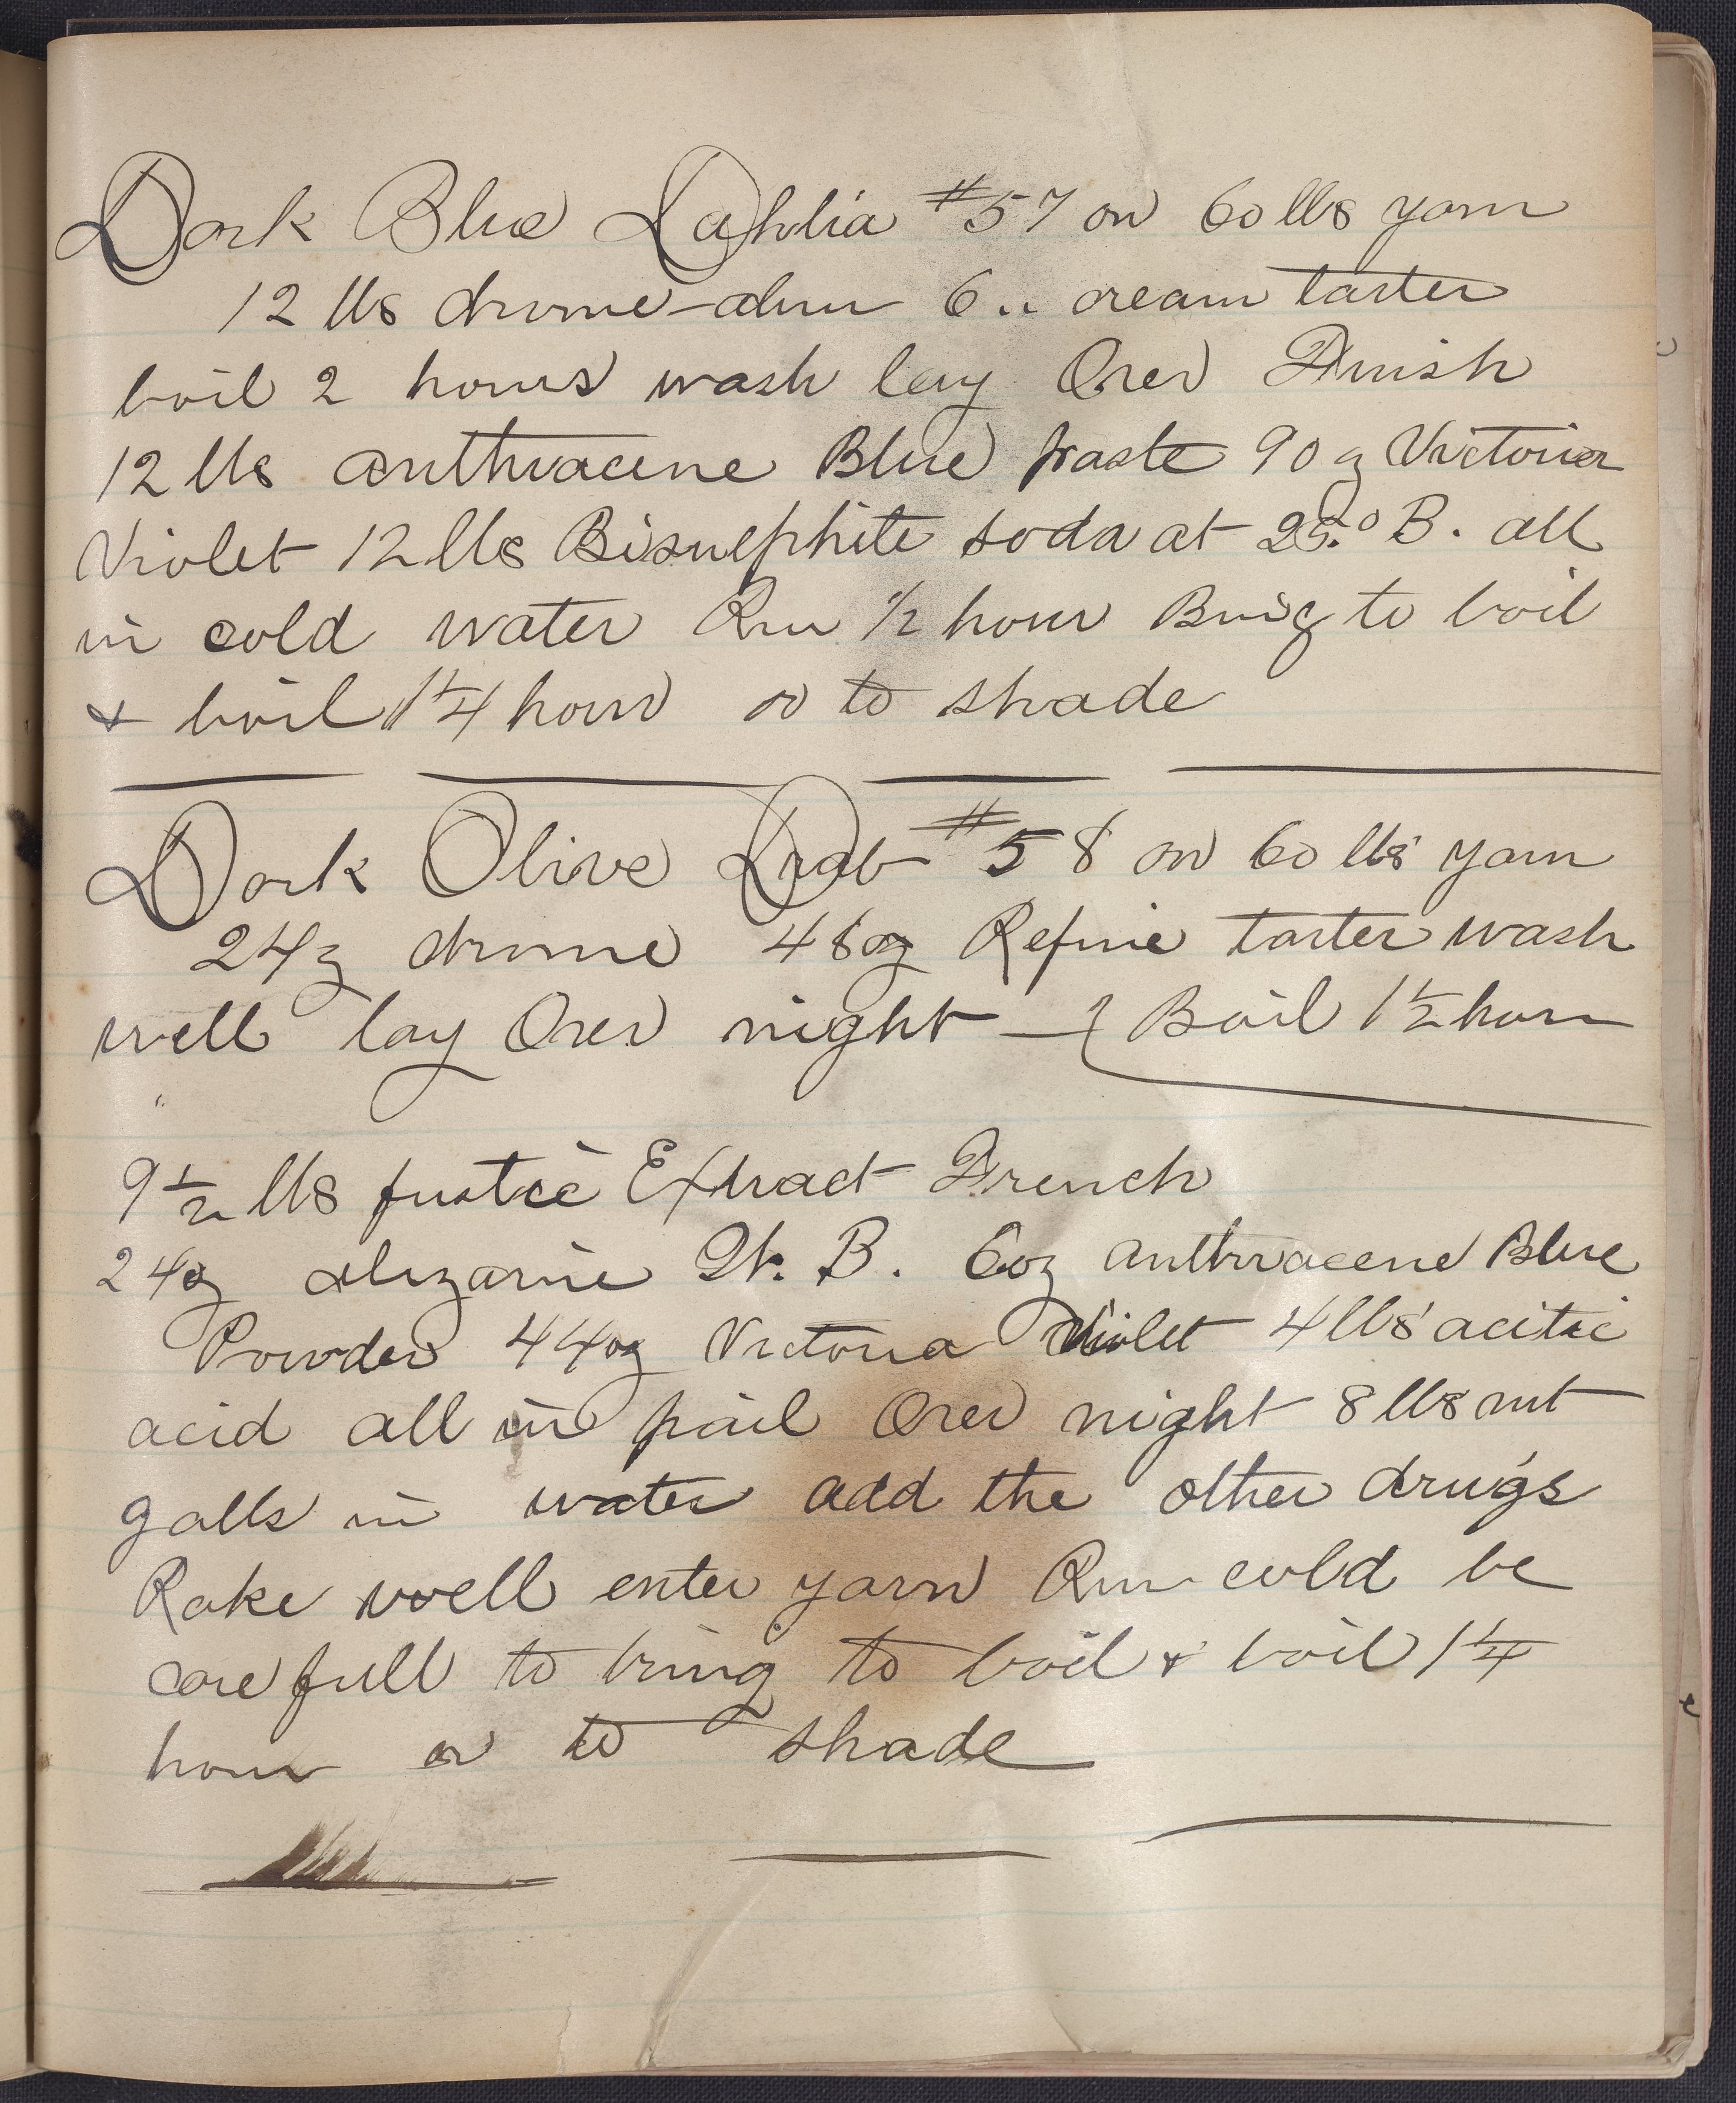 Dark Blue Dahlia #57 on 60 lbs yarn
12 lbs chrome-alum 6 " cream tarter
boil 2 hours wash lay Over Finish
12 lbs anthracene Blue paste 90 z Victoria
Violet 12 lbs Bisulphite soda at 25.° B. all
in cold water Run 1/2 hour Brig to boil
& boil 1 1/4 hour or to shade
Dark Olive Drab #58 on 60 lbs yarn
24z chrome 48oz Refine tarter wash
well lay Over night — { Boil 1 1/2 hour
9 1/2 lbs fustic Extract French
24oz alizarine W. B. 6oz anthracene Blue
Powder 44oz Victoria Violet 4 lbs acitic
acid all in pail Over night 8 lbs nut
galls in water add the other drugs
Rake well enter yarn Run cold be
carefull to bring to boil & boil 1 1/4
hour or to shade